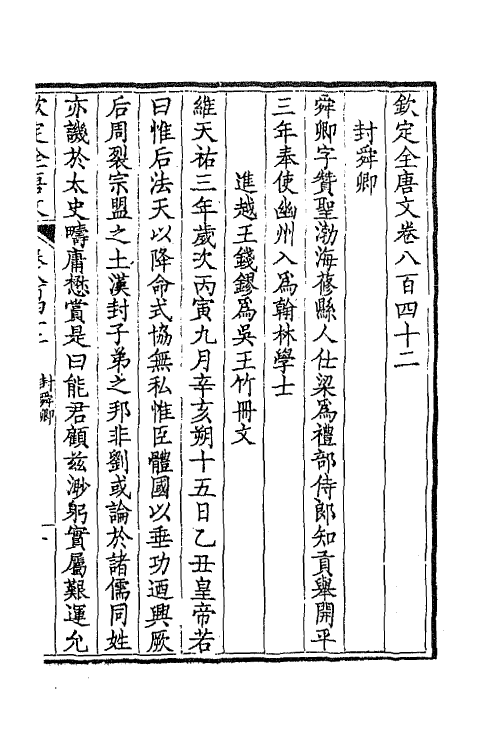 欽定全唐文卷八百四十二
封舜卿
舜卿字贊聖渤海蓚縣人仕梁爲禮部侍郎知貢舉開平
三年奉使幽州入爲翰林學士
進越王錢鏐爲吳王竹冊文
維天祐三年歲次丙寅九月辛亥朔十五日乙丑皇帝若
曰惟后法天以降命式協無私惟臣體國以垂功迺興厥
后周裂宗盟之土漢封子弟之邦非劉或論於諸儒同姓
亦譏於太史疇庸懋賞是曰能君顧兹渺躬實屬艱運允
封舜卿
一